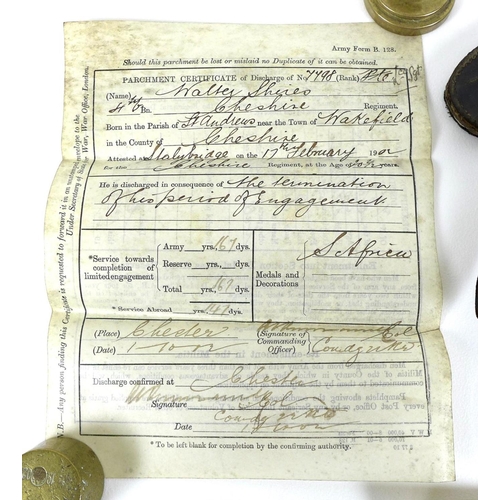 Army Form B. 128.
Should this parchment be lost or mislaid no Duplicate of it can be obtained.
PARCHMENT CERTIFICATE of Discharge of No 7798 (Rank) Pte
(Name) Walter Shires
4th Bn. Cheshire Regiment,
Born in the Parish of St Andrews near the Town of Wakefield
in the County of Cheshire
Attested at Stalybridge on the February 190
for the Cheshire Regiment, at the Age of years.
He is discharged in consequence of the termination
of his period of Engagement
*Service towards completion of limited engagement
Army yrs. 67 dys.
Reserve yrs. dys.
Total yrs. dys.
*Service Abroad yrs. dys.
Medals and Decorations
S. Africa
(Place) Chester
(Date) 1-10-02
Signature of Commanding Officer) Col
Discharge confirmed at Chester
Signature Col
Date
*To be left blank for completion by the confirming authority.
N.B.—Any person finding this Certificate is requested to forward it in an unstamped envelope to the
Under Secretary of State for War, War Office, London.